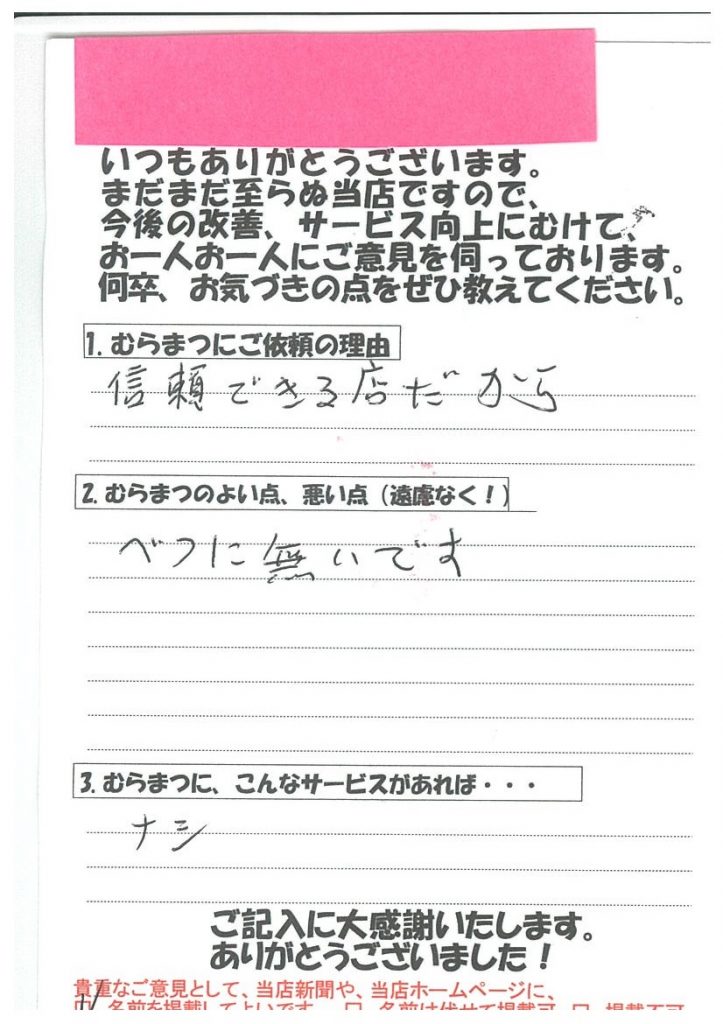 いつもありがとうございます。
まだまだ至らぬ当店ですので、
今後の改善、サービス向上にむけて、
お一人お一人にご意見を伺っております。
何卒、お気づきの点をぜひ教えてください。
1. むらまつにご依頼の理由
信頼できる店だから
2. むらまつのよい点、悪い点（遠慮なく！）
べつに無いです
3. むらまつに、こんなサービスがあれば・・・
ナシ
ご記入に大感謝いたします。
ありがとうございました！
貴重なご意見として、当店新聞や、当店ホームページに、
名前を掲載してよいです。 □ 名前は伏せて掲載可 □ 掲載不可